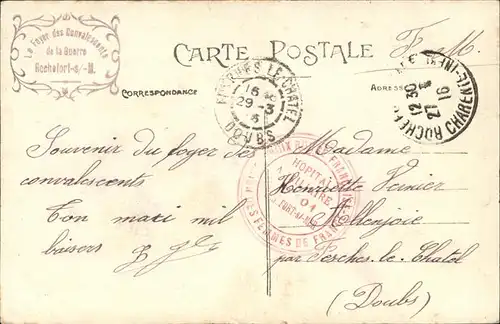 Le Foyer des Convalescents
de la Guerre
Rochefort-s/-M.
F. M.
CARTE POSTALE
CORRESPONDANCE
ADRESSE
16
29 - 3
DOUBS
12 30
27
16
CHARENTE-INF
HOPITAL
DES FEMMES DE FRANCE
Souvenir du foyer des
convalescents
Ton mari mil
baisers
Madame
Henriette
Allenjoie
par Fesches-le-Chatel
(Doubs)